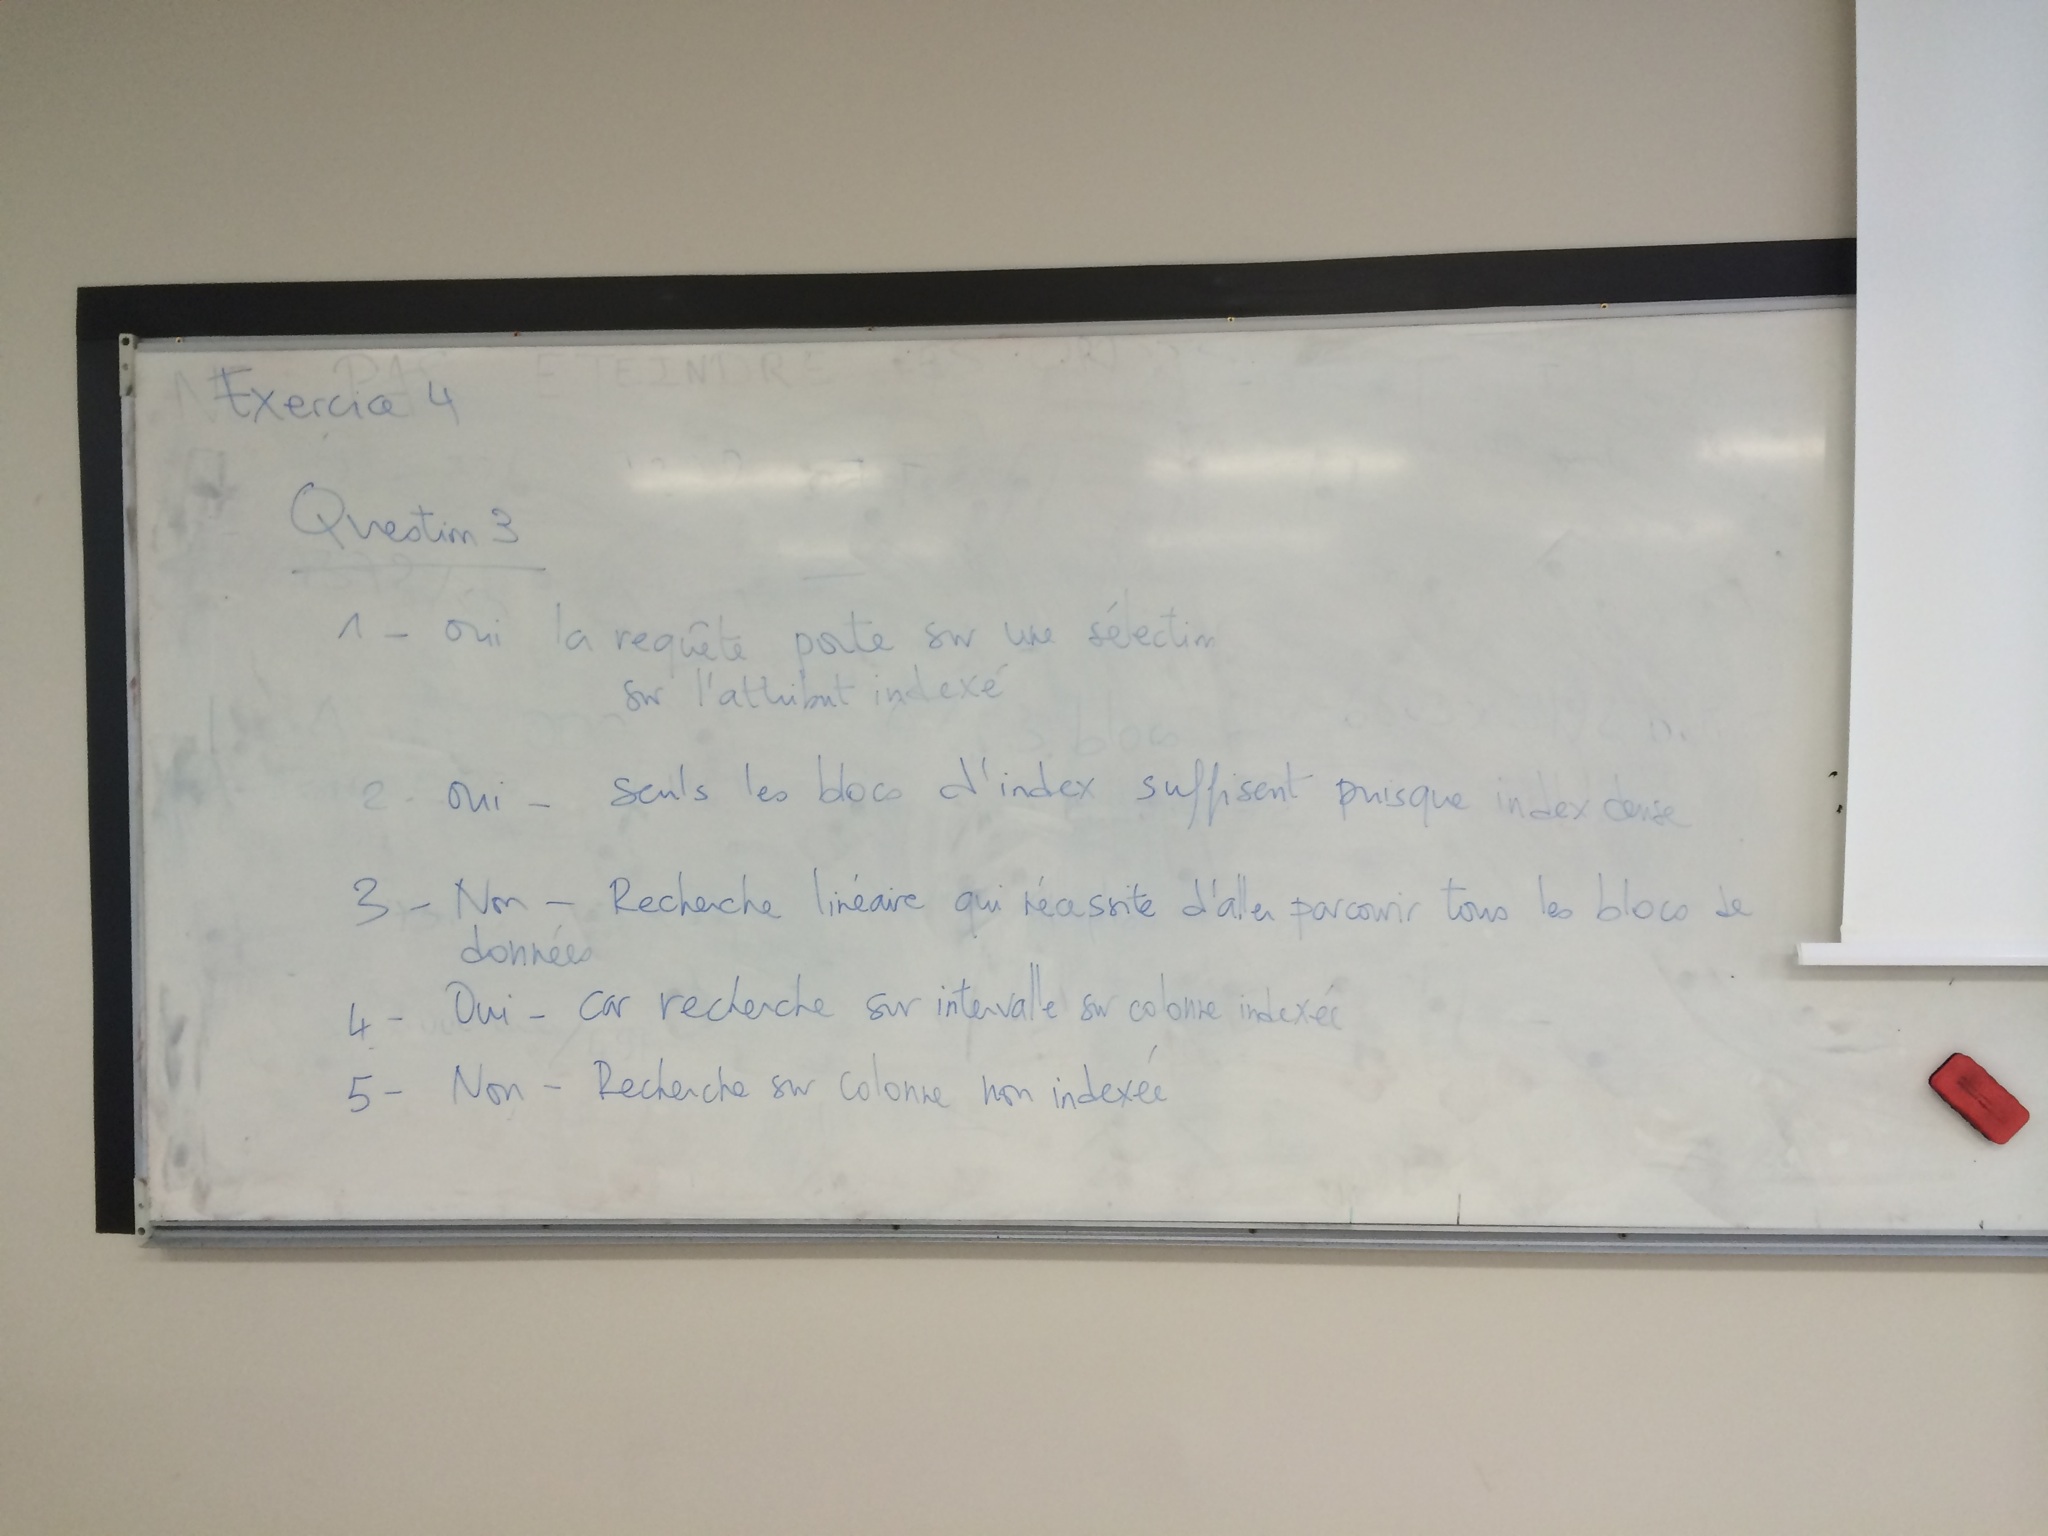 NE PAS ETEINDRE LES ORDIS
Exercice 4
Question 3
1 - oui la requête porte sur une sélection
sur l'attribut indexé
blocs
2 - oui - seuls les blocs d'index suffisent puisque index dense
3 - Non - Recherche linéaire qui nécessite d'aller parcourir tous les blocs de
données
4 - Oui - car recherche sur intervalle sur colonne indexée
5 - Non - Recherche sur colonne non indexée